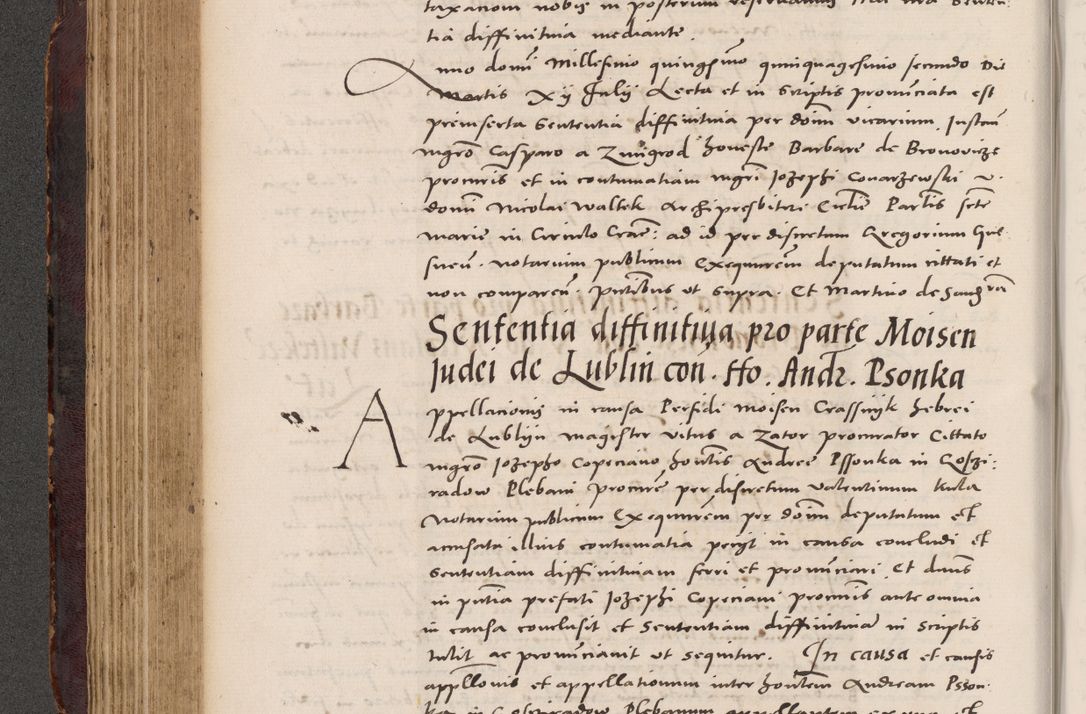 taxacione nobis in posterum reservatum
tia diffinitiva mediante.
Anno domi Millesimo quingsmo quinquagesimo secundo Die
Martis Xij Julij Lecta et in scriptis pronunciata est
preinserta Sententia diffinitiva per dom̄ vicarium. Instan
mgro Casparo a Zmigrod honeste Barbare de Bronovicze
procuris et in contumatiam mgri Jozephi Convarzewski
domi Nicolai Waltek Archipresbiteri Partis sete
marie in Circulo Crac: ad id per discretum Gregorium
notarium publicum Exequirem deputatum cittati et
non comparen. putibus ut supra. Et Martino de Sand
Sententia diffinitiva pro parte Moisen
Judei de Lublin con. Ho. Andr. Psonka
Appellacionis in causa Perfidi Moisen Crassnyk hebrei
de Lublijn magister vitus a Zator procurator Cittato
mgro Jozepho Copeciano hontis Andree Pssonka in
radow Plebani procure per discretum valentinum Kula
Notarium publicum Exequirem per dom̄ deputatum et
accusata illius contumatia petijt in causa concludi et
Sententiam diffinitivam ferri et pronunciari. Et dnus
in putia prefati Jozephi Copeciani procuris ante omnia
in causa conclusit et Sententiam diffinitivā in scriptis
tulit ac pronunciavit ut sequitur. In causa et causis
appllonis et appellationum inter hontem Andream Psson
ka in Plebanum et